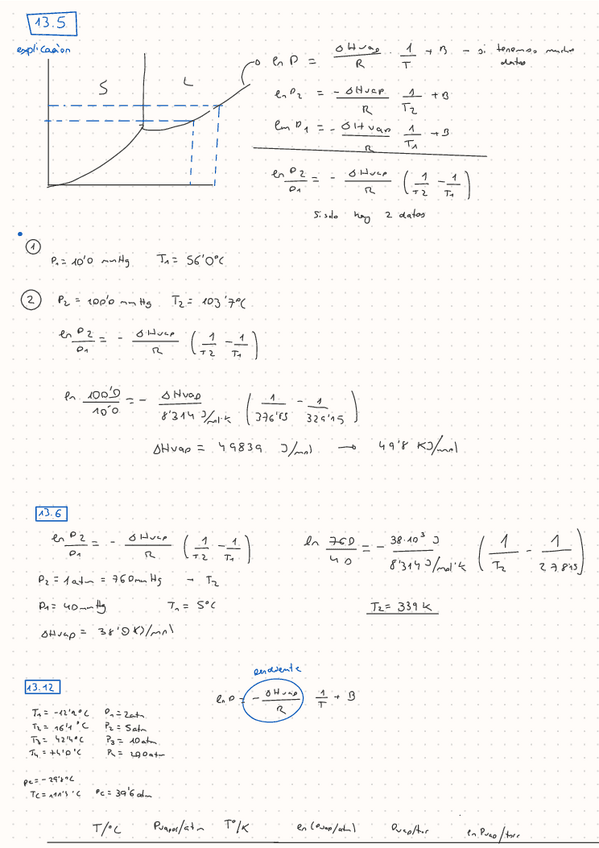 13.5
explicación
S L
ln P = ΔHvap/R · 1/T + B - si tenemos mucho datos
ln P2 = - ΔHvap/R 1/T2 + B
ln P1 = - ΔHvap/R 1/T1 + B
ln P2/P1 = - ΔHvap/R (1/T2 - 1/T1)
Si solo hay 2 datos
① P1 = 10'0 mmHg T1 = 56'0°C
② P2 = 100'0 mmHg T2 = 103'7°C
ln P2/P1 = - ΔHvap/R (1/T2 - 1/T1)
ln 100'0/10'0 = - ΔHvap/8'314 J/mol·K (1/376'85 - 1/329'15)
ΔHvap = 49839 J/mol → 49'8 KJ/mol
13.6
ln P2/P1 = - ΔHvap/R (1/T2 - 1/T1) ln 760/40 = - 38·10³ J/8'314 J/mol·K (1/T2 - 1/278'15)
P2 = 1 atm = 760 mmHg - T2
P1 = 40 mmHg T1 = 5°C T2 = 339 K
ΔHvap = 38'0 KJ/mol
13.12
pendiente
ln P = - ΔHvap/R 1/T + B
T1 = -12'4°C P1 = 2 atm
T2 = 16'1°C P2 = 5 atm
T3 = 42'4°C P3 = 10 atm
P4 = 20'0 atm
Pc = 39'6 atm
T/°C Pvapor/atm T°/K ln (Pvap/atm) Pvap/torr ln Pvap/torr